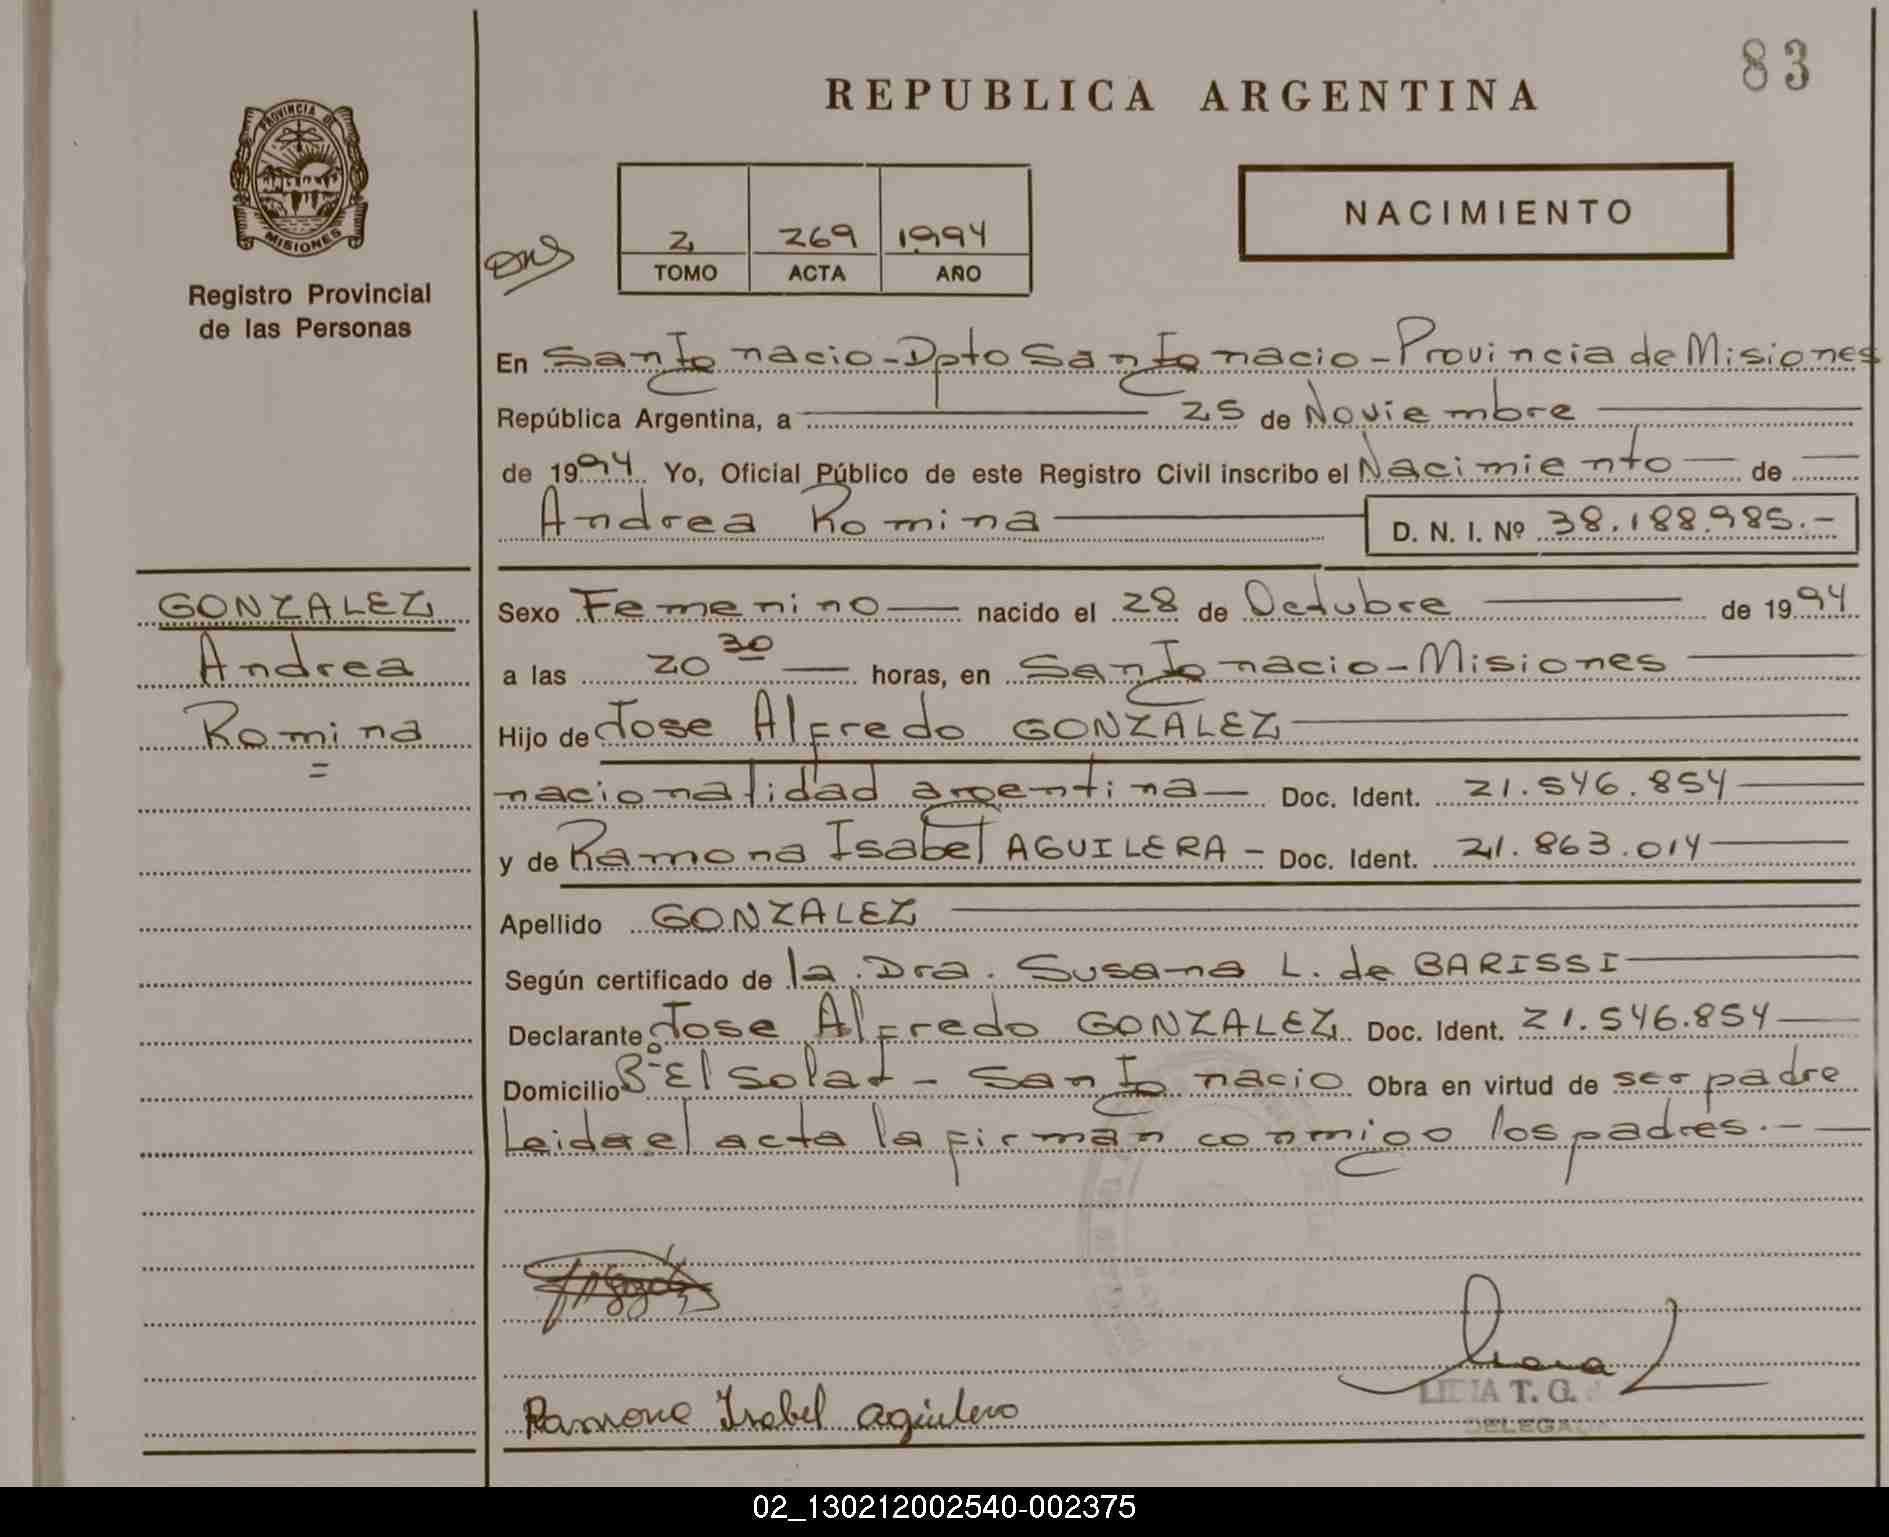 83
REPUBLICA ARGENTINA
PROVINCIA DE
MISIONES
Registro Provincial
de las Personas
2 269 1994
TOMO ACTA AÑO
NACIMIENTO
En San Ignacio - Dpto San Ignacio - Provincia de Misiones
República Argentina, a 25 de Noviembre
de 1994 Yo, Oficial Público de este Registro Civil inscribo el Nacimiento de
Andrea Romina D. N. I. Nº 38.188.985.-
GONZALEZ
Andrea
Romina
=
Sexo Femenino nacido el 28 de Octubre de 1994
a las 20 30 horas, en San Ignacio - Misiones
Hijo de Jose Alfredo GONZALEZ
nacionalidad argentina Doc. Ident. 21.546.854
y de Ramona Isabel AGUILERA - Doc. Ident. 21.863.014
Apellido GONZALEZ
Según certificado de la Dra. Susana L. de BARISSI
Declarante Jose Alfredo GONZALEZ Doc. Ident. 21.546.854
Domicilio Bº El Solar - San Ignacio Obra en virtud de ser padre
Leida el acta la firman conmigo los padres.-
Ramona Isabel Aguilera
T. G.
02_130212002540-002375